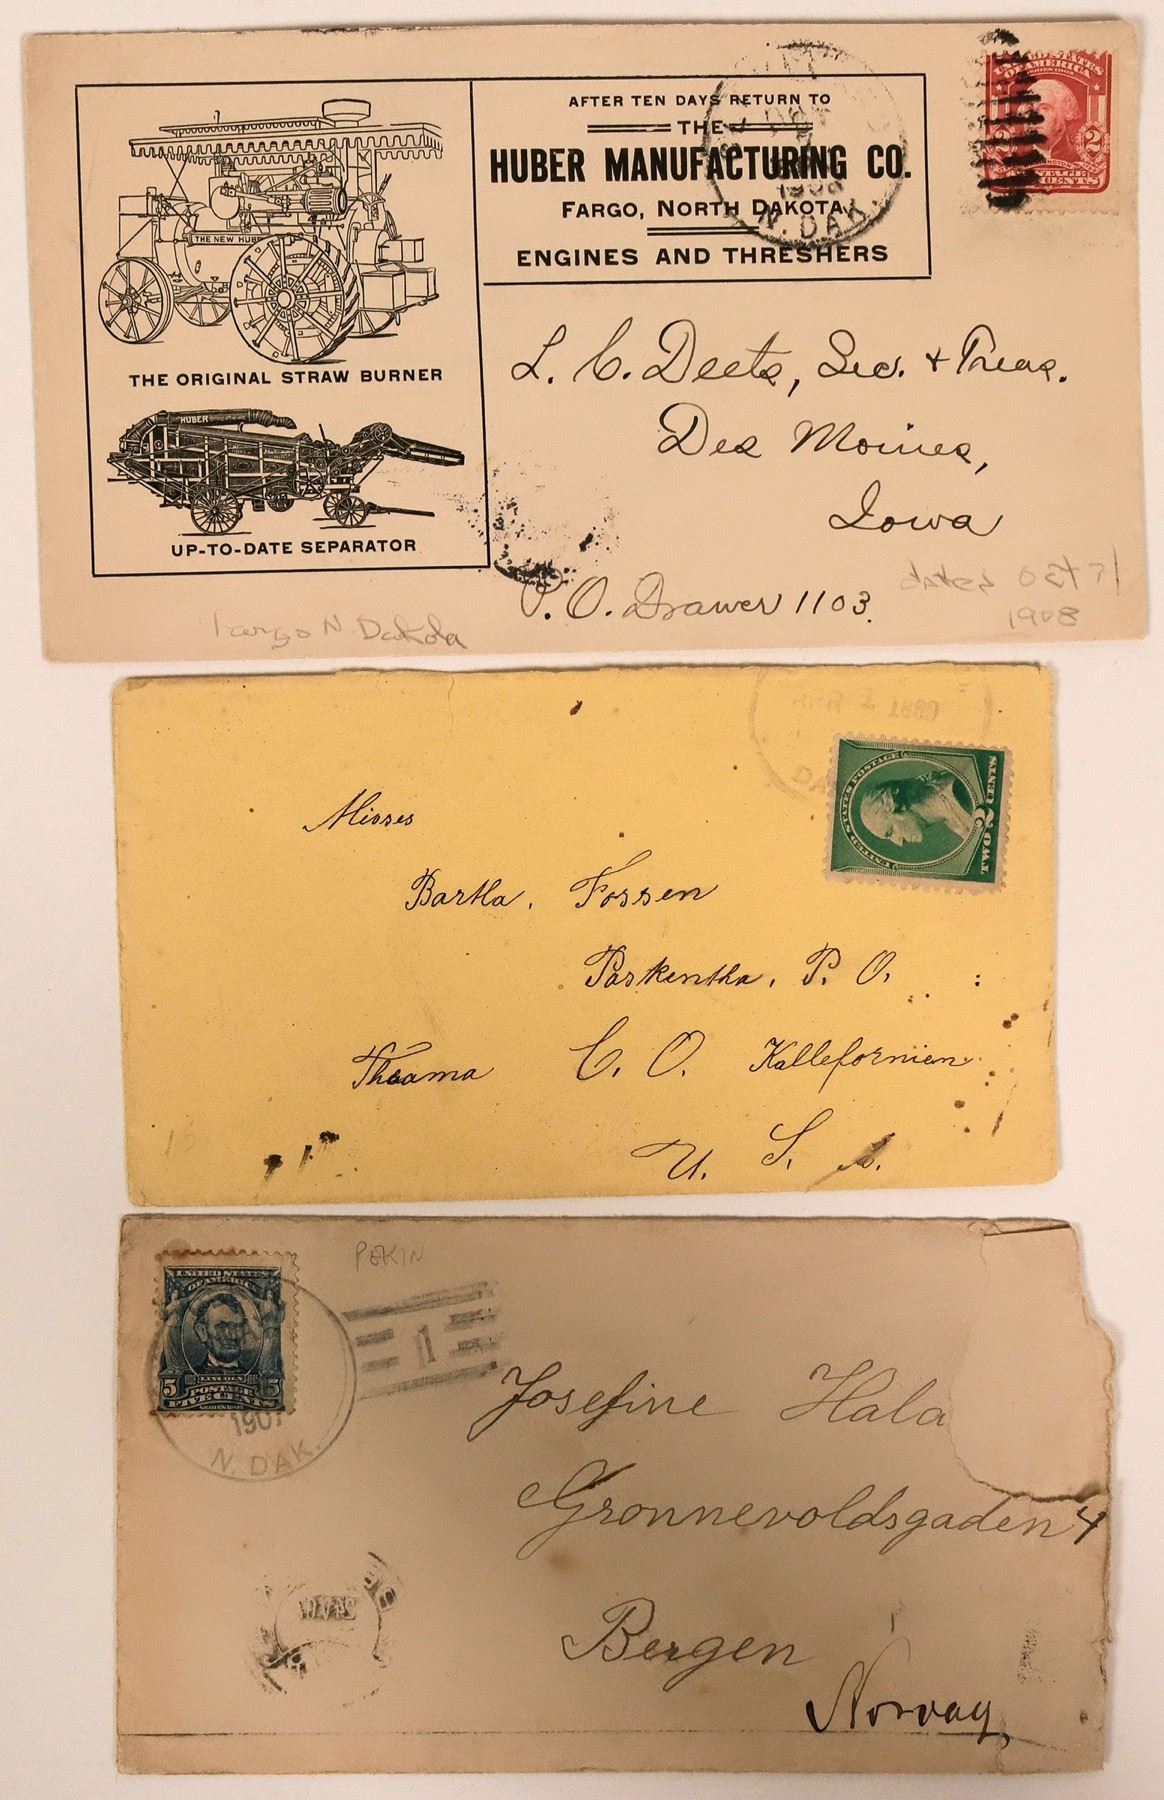 AFTER TEN DAYS RETURN TO
THE
HUBER MANUFACTURING CO.
FARGO, NORTH DAKOTA
ENGINES AND THRESHERS
1908
N. DAK.
UNITED STATES
OF AMERICA
SERIES 1902
2 2
POSTAGE
CENTS
THE NEW HUB
THE ORIGINAL STRAW BURNER
HUBER
UP-TO-DATE SEPARATOR
L. C. Deets, Sec. + Treas.
Des Moines,
Iowa
P. O. Drawer 1103.
Fargo N Dakota
dated Oct 71
1908
UNITED STATES POSTAGE
2
TWO CENTS
Misses
Bartha, Fossen
Paskentha, P. O.
Theama C. O. Kallefornien
U. S. A.
PEKIN
UNITED STATES
OF AMERICA
LINCOLN
5 POSTAGE 5
FIVE CENTS
SERIES 1902
1907
N. DAK.
1
Josefine Hala
Gronnevoldsgaden 4
Bergen
Norway,